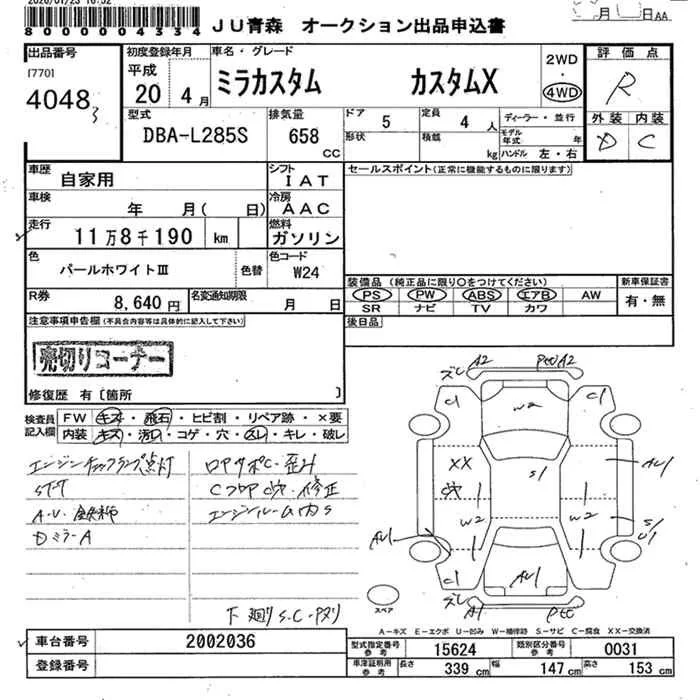 8000004334
JU青森 オークション出品申込書
月 日 AA
出品番号
[770]
4048
3
初度登録年月
平成
20 4月
車名・グレード
ミラカスタム カスタムX
2WD
・
4WD
評価点
R
型式
DBA-L285S
排気量
658
CC
ドア 5
形状
定員 4 人
積載 kg
ディーラー・並行
モデル年式 年
ハンドル 左・右
外装 内装
D C
車歴
自家用
シフト
IAT
車検
年 月( 日)
冷房
AAC
走行
11万8千190 km
燃料
ガソリン
色
パールホワイトⅢ
色替
色コード
W24
R券
8,640円
名変通知期限
月 日
セールスポイント(正常に機能するものに限ります)
装備品 (純正品に限り○をつけてください)
PS PW ABS エアB AW
SR ナビ TV カワ
新車保証書
有・無
後日品
注意事項申告欄(不具合内容等は具体的に記入して下さい)
売切りコーナー
修復歴 有〔箇所 〕
検査員
記入欄
FW キズ・飛石・ヒビ割・リペア跡・×要
内装 キズ・汚れ・コゲ・穴・スレ・キレ・破レ
エンジンチェックランプ点灯
A・V・金柿
DミラーA
ロアサポC・歪み
Cフロア穴・修正
エンジンルーム内S
下廻りS・C・Pヌリ
ズレ A2
C1 W2 C1
XX S1 AU1
穴 W2 W2
AU1
C1 AU1
ズレ A1
スペア
A-キズ E-エクボ U-凹み W-補修跡 S-サビ C-腐食 XX-交換済
車台番号 2002036
登録番号
型式指定番号 参考 15624
類別区分番号 参考 0031
車庫証明用 参考 長さ 339cm 幅 147cm 高さ 153cm